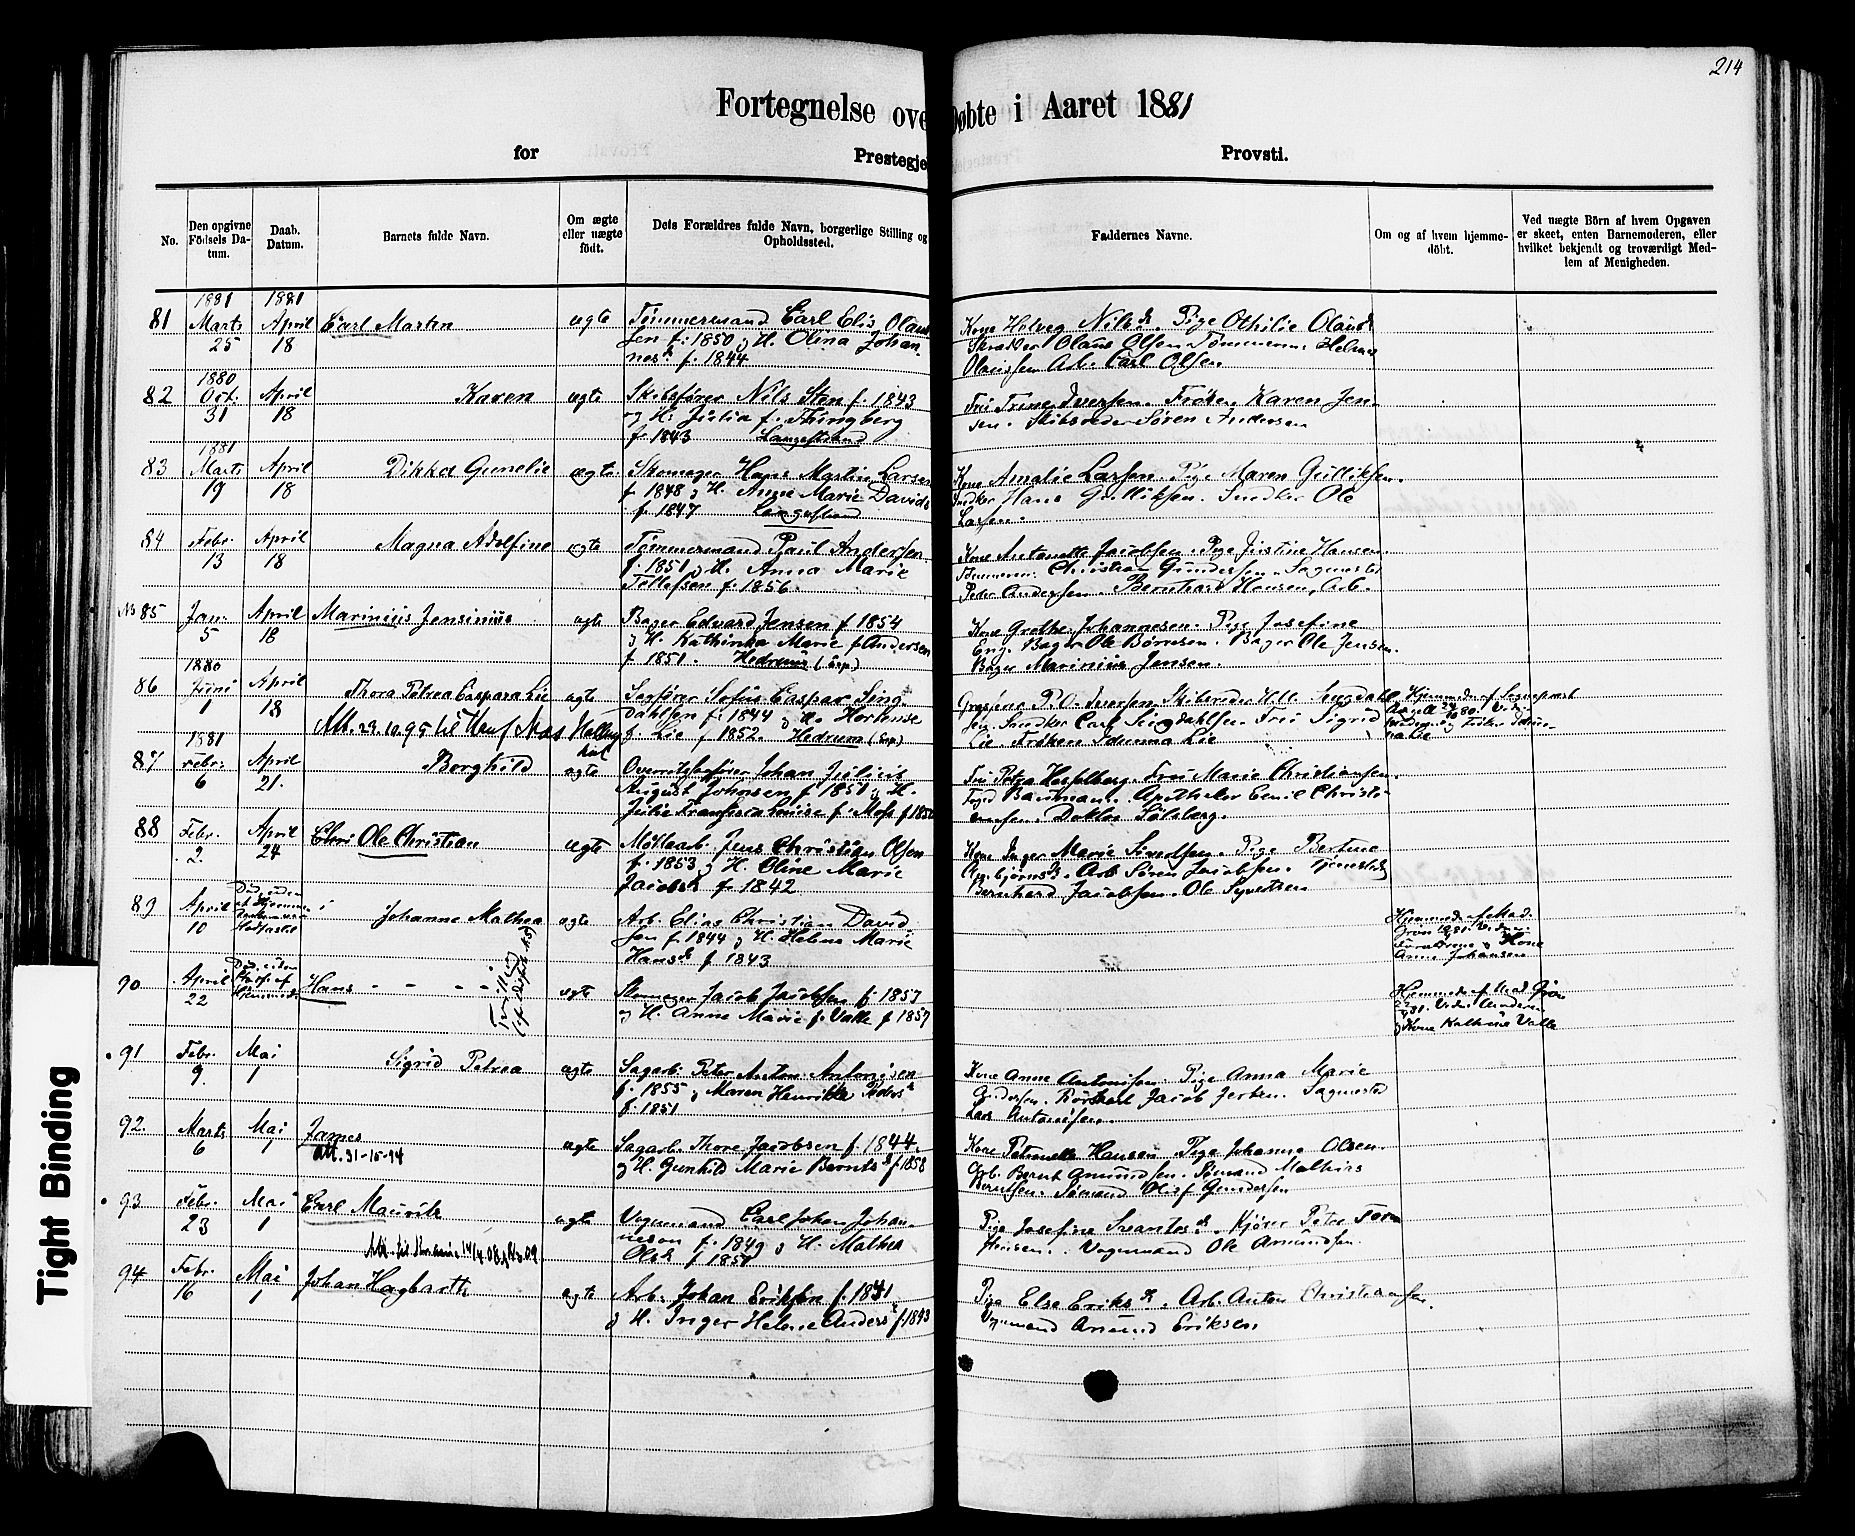 214
Fortegnelse ove Døbte i Aaret 1881
for Prestegje Provsti.
No.
Den opgivne Födsels Datum.
Daab. Datum.
Barnets fulde Navn.
Om ægte eller uægte födt.
Dets Forældres fulde Navn, borgerlige Stilling og Opholdssted.
Faddernes Navne.
Om og af hvem hjemmedöbt.
Ved uægte Börn af hvem Opgaven er skeet, enten Barnemoderen, eller hvilket bekjendt og troværdigt Medlem af Menigheden.
81 1881 Marts 25 1881 April 18 Carl Martin ægte Tömmermand Carl Elis Olaus
sen f. 1850 og H. Olina Johan
nesd. f. 1844
Kone Helveg Nilsd. Pige Othilie Olausd
Skrædder Olaus Olsen Tömmerm. Helmer
Olaussen Arb. Carl Olsen.
82 1880 Oct. 31 April 18 Karen ægte Skibsfører Nils Sten f. 1843
og H. Julia f. Thungberg
f. 1843 Langestrand
Fru Trine Iversen. Fröken Karen Jen
sen. Skibsreder Sören Andersen
83 1881 Marts 19 April 18 Dikka Gunelie ægte Skomager Hans Martin Larsen
f. 1848 og H. Anne Marie Davids
f. 1847 Langestrand
Kone Amalie Larsen. Pige Maren Gulliksen.
Snedker Hans Gulliksen. Snedker Ole
Larsen.
84 Febr. 13 April 18 Magna Adolfine ægte Tømmermand Paul Andersen
f. 1851 og H. Anna Marie
Tellefsen f. 1856.
Kone Antonette Jacobsen. Pige Justine Hansen.
Tömmerm. Christian Gundersen. Sagmester
Peder Andersen. Bernhard Hansen, Arb.
85 Jan. 5 April 18 Marinius Jensinius ægte Bager Edvard Jensen f. 1854
og H. Kathinka Marie f. Andersen
f. 1851. Hedrum (Sep)
Kone Grethe Johannesen. Pige Josefine
Eng. Bager Ole Börresen. Bager Ole Jensen.
Bager Marinius Jensen.
86 1880 Juni 1 April 18 Thora Petrea Caspara Lie ægte Sagfører Sofus Caspar Sing
dahlsen f. 1844 og H. Hortense
f. Lie f. 1852. Hedrum (Sep)
Att. 23.10.95
Sen. Snedker Carl Singdahlsen. Fru Sigrid
Lie. Fröken Idunna Lie
87 1881 Febr. 6 April 21. Borghild ægte Overretssagfører Johan Julius
August Johnsen f. 1851 og H.
Julie Fransisca Louise f. Moss f. 185
Fru Petra Hesselberg. Fru Marie Christiansen.
Foged Baumann. Apotheker Emil Christi
ansen. Doktor Sölsberg.
88 Febr. 2. April 24 Ole Christian ægte Möllearb. Jens Christian Olsen
f. 1853 og H. Oline Marie
Jacobsd. f. 1842
Kone Inger Marie Sivertsen. Pige Bertine
Asbjörnsd. Arb. Sören Jacobsen. Tjenestek
Bernhard Jacobsen. Ole Syvertsen
89 April 10 Johanne Mathea ægte Arb. Elias Christian David
sen f. 1844 og H. Helene Marie
Hansd. f. 1843
Anne Johansen
90 April 22 Hans - - - - ægte Skomager Jacob Jacobsen f. 1857
og H. Anne Marie f. Valle f. 1857
Hjemmedr. af Mad. Grön
og Kone Kathrine Valle
91 Febr. 9. Mai 1 Sigrid Petrea ægte Sagarb. Peter Anton Antonisen
f. 1855 og Maren Henrikke Peders
f. 1851
Kone Anne Antonisen. Pige Anna Marie
Gundersen. Jacob Sagmester
Lars Antonisen.
92. Marts 6 Mai 1 James
Att. 31-10-94
ægte Sagarb. Thore Jacobsen f. 1844
og H. Gunhild Marie Berntsd f. 1858
Kone Petronelle Hansen Pige Johanne Olsen.
Arb. Bernt Amundsen. Sömand Mathias
Berntsen. Sömand Olaf Gundersen
93 Febr. 23 Mai 1 Carl Mauritz ægte Vognmand Carl Johan Johan
neson f. 1849 og H. Mathea
Olsd. f. 1857
Pige Josefine Svantesd. Kjører Peter
Hansen. Vognmand Ole Amundsen.
94 Febr. 16 Mai 1 Johan Hagbarth ægte Arb. Johan Eriksen f. 1841
og H. Inger Helene Anders f. 1843
Pige Else Eriksd. Arb. Anton Christiansen.
Vognmand Amund Eriksen
Tight Binding